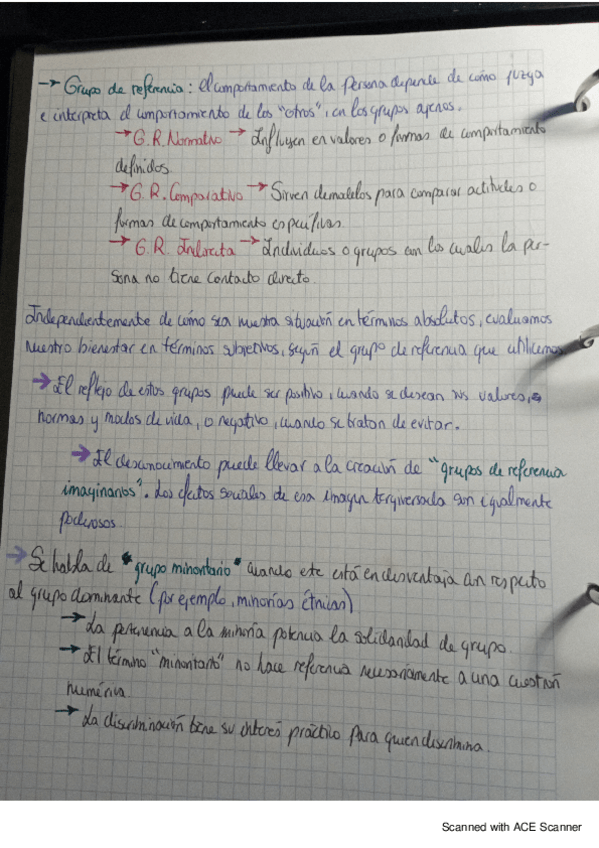 → Grupo de referencia: el comportamiento de la persona depende de cómo juzga
e interpreta el comportamiento de los "otros", en los grupos ajenos.
→ G.R. Normativo → Influyen en valores o formas de comportamiento
definidos
→ G.R. Comparativo → Sirven de modelos para comparar actitudes o
formas de comportamiento específicas.
→ G.R. Indirecta → Individuos o grupos con los cuales la per-
sona no tiene contacto directo.
Independientemente de cómo sea nuestra situación en términos absolutos, evaluamos
nuestro bienestar en términos subjetivos, según el grupo de referencia que utilicemos.
→ El reflejo de estos grupos puede ser positivo, cuando se desean sus valores,
normas y modos de vida, o negativo, cuando se tratan de evitar.
→ El desconocimiento puede llevar a la creación de "grupos de referencia
imaginarios". Los efectos sociales de esa imagen tergiversada son igualmente
poderosos
→ Se habla de "grupo minoritario" cuando este está en desventaja con respecto
al grupo dominante (por ejemplo, minorías étnicas)
→ La pertenencia a la minoría potencia la solidaridad de grupo.
→ El término "minoritario" no hace referencia necesariamente a una cuestión
numérica.
→ La discriminación tiene su interés práctico para quien discrimina.
Scanned with ACE Scanner